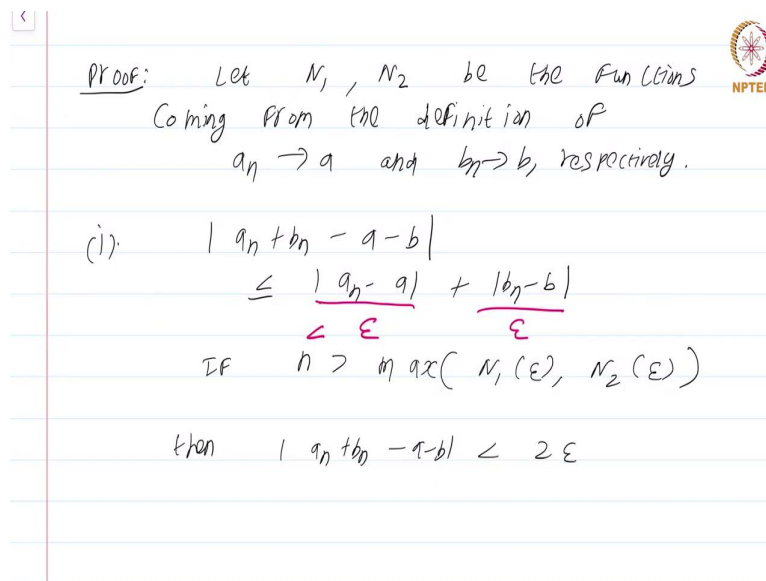 NPTEL
Proof: Let N₁, N₂ be the functions
Coming from the definition of
aₙ → a and bₙ → b, respectively.
(i). | aₙ + bₙ - a - b |
≤ | aₙ - a | + | bₙ - b |
< ε ε
If n > max( N₁(ε), N₂(ε) )
then | aₙ + bₙ - a - b | < 2ε